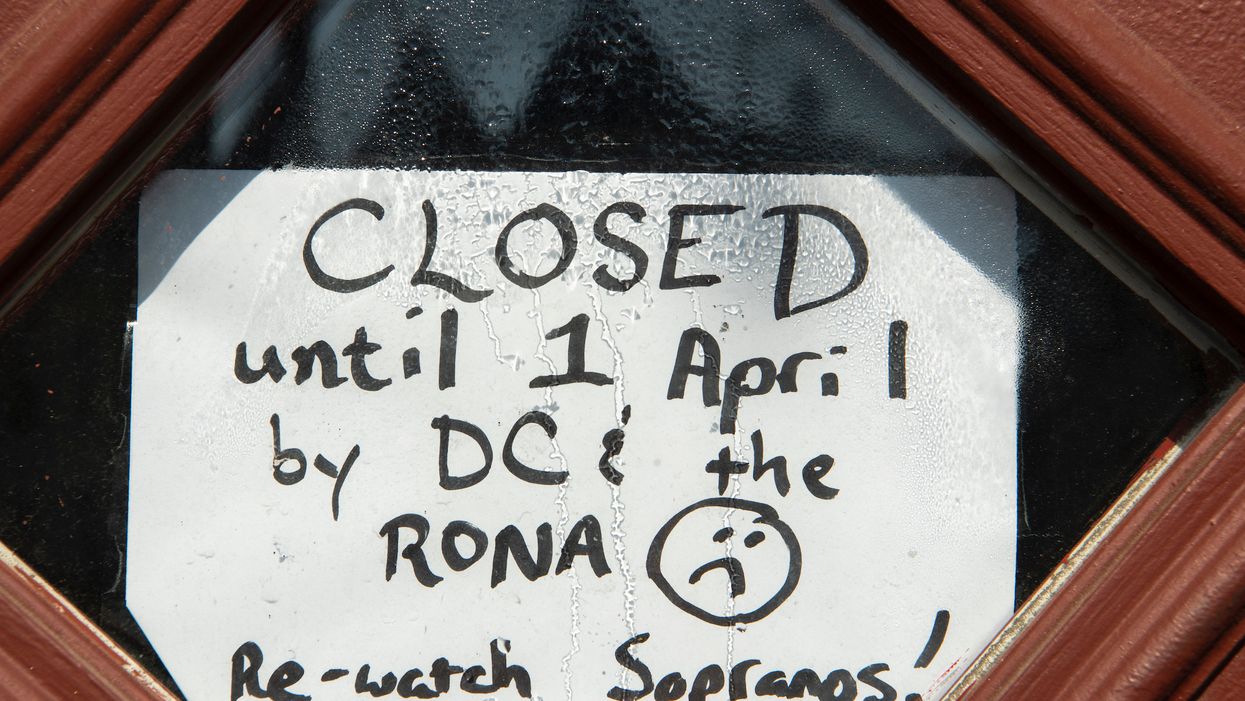 CLOSED
until 1 April
by DC & the
RONA
Re-watch Sopranos!